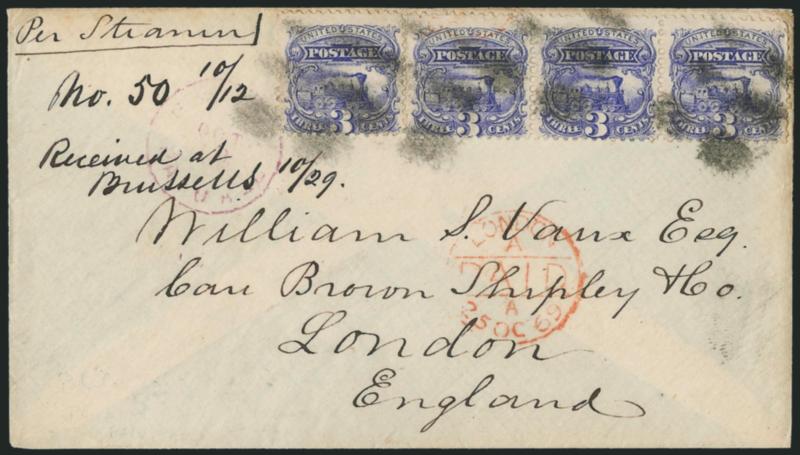 Per Steamer
No. 50 10/12
Received at
Brussells 10/29.
UNITED STATES
POSTAGE
THREE 3 CENTS
UNITED STATES
POSTAGE
THREE 3 CENTS
UNITED STATES
POSTAGE
THREE 3 CENTS
UNITED STATES
POSTAGE
THREE 3 CENTS
OCT
William S. Vaux Esq.
Care Brown Shipley & Co.
London
England
LONDON
A
PAID
A
25 OC 69